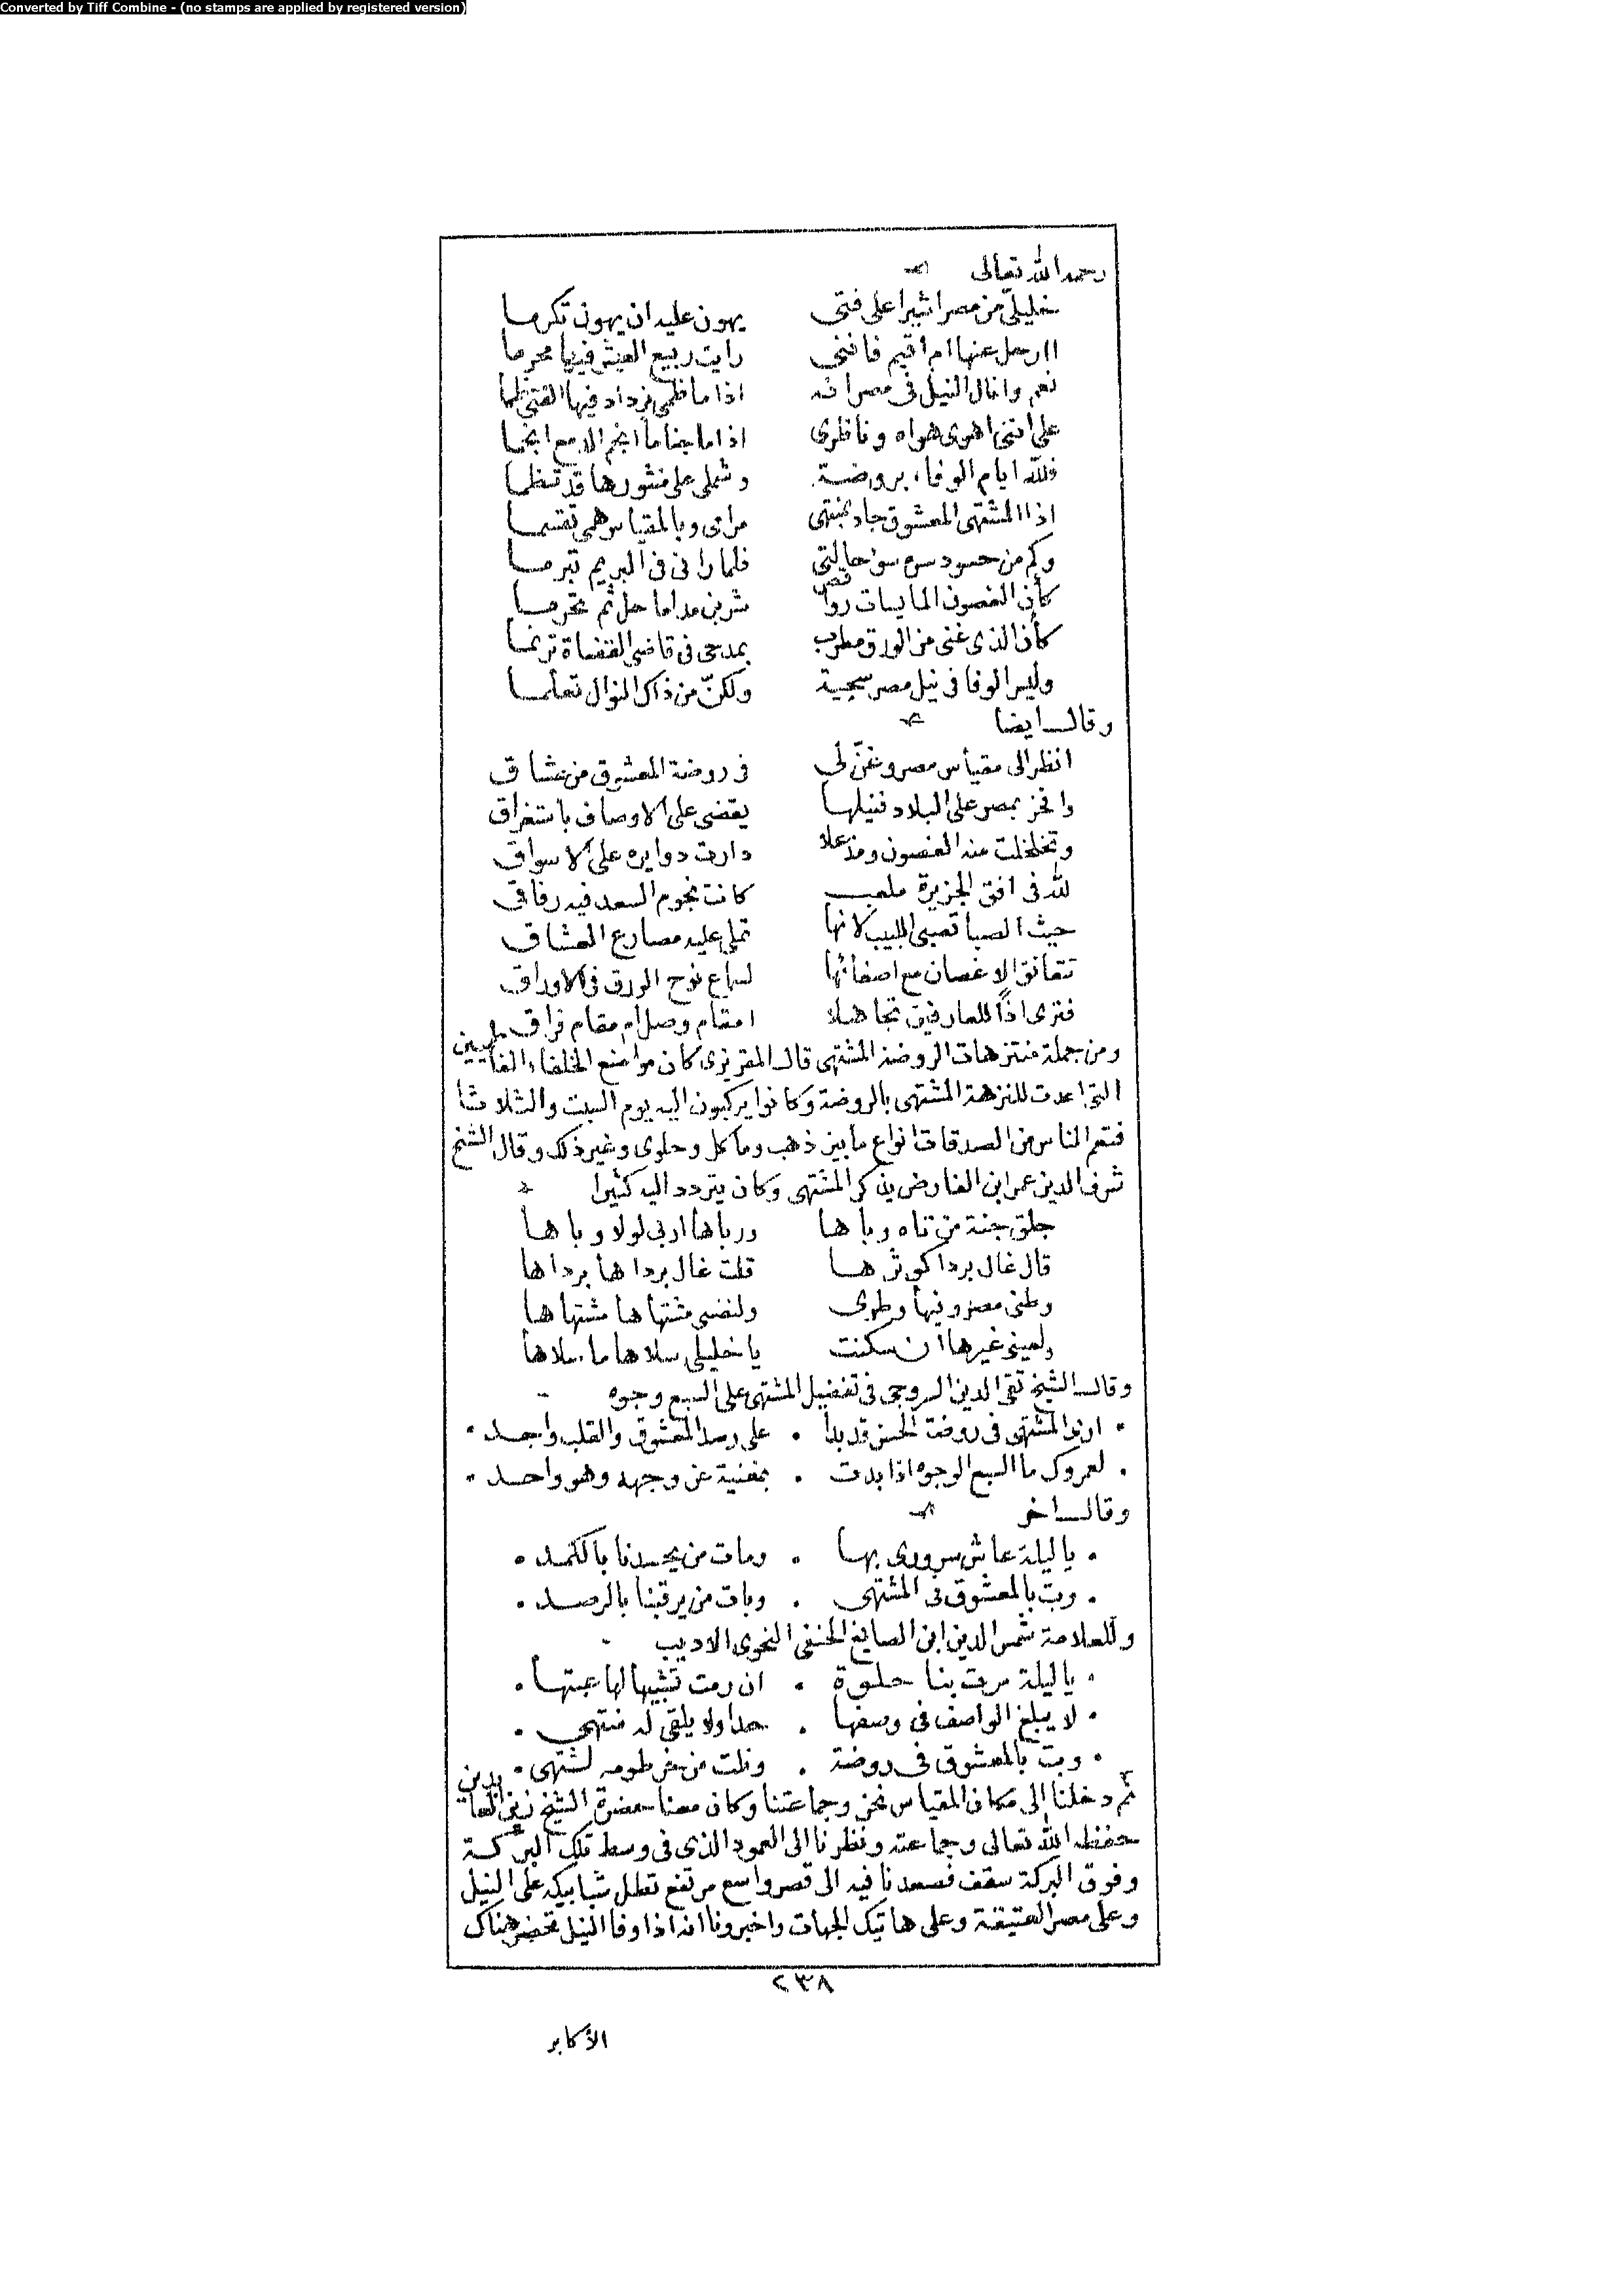 Converted by Tiff Combine - (no stamps are applied by registered version)
رحمه الله تعالى
خليلىّ من مصر اشيرا على فتى يهون عليه ان يهون تكرما
اارحل عنها ام اقيم فاننى رايت ربيع العيش فيها محرما
نعم وانال النيل فى مصر انه اذا ما ظمى يزداد فيها الفتى ظما
على اننى اهوى هواه وناظرى اذا ما جفا ما انجم الادمع انجما
فلله ايام الوفاء بروضة وشملى على منثورها قد تنظما
اذا المشتهى المعشوق جاد بمنتهى مرامى وبالمقياس همى تقسما
وكم من حسود سره سوء حالتى فلما رانى فى البريم تبرما
كأن الغصون المايسات رواقص شربن مداما حل ثم تحرما
كأن الذى غنى من الورق مطرب بمدحى فى قاضى القضاة ترنما
وليس الوفا فى نيل مصر سجية ولكنّ من ذاك النوال تعلما
وقال ايضا
انظر الى مقياس مصر وغنّ لى فى روضة المعشوق من عشاق
وافخر بمصر على البلاد فنيلها يقضى على الاوصاف باستغراق
وتخلخلت منه الغصون ومذ علا دارت دوايره على الاسواق
لله فى افق الجزيرة ملعب كانت نجوم السعد فيه رفاقى
حيث الصبا تصبى اللبيب كانها تملى عليه مصارع العشاق
تتعانق الاغصان مع اصغائها لسماع نوح الورق فى الاوراق
فترى اذًا للعارفين تجاهلا امقام وصل ام مقام فراق
ومن جملة منتزهات الروضة المشتهى قال المقريزى كان مواضع الخلفاء الفاطميين
التى اعدت للنزهة المشتهى بالروضة وكانوا يركبون اليه يوم السبت والثلاثا
فتعم الناس من الصدقات انواع ما بين ذهب ومأكل وحلوى وغير ذلك وقال الشيخ
شرف الدين عمر ابن الفارض يذكر المشتهى وكان يتردد اليه كثيرا
جلق جنة من تاه وباها ورباها اربى لولا وباها
قال غال بردا كوثرها قلت غال برداها برداها
وطنى مصر وفيها وطرى ولنفسى مشتهاها مشتهاها
ولعينى غيرها ان سكنت يا خليلى سلاها ما سلاها
وقال الشيخ تقى الدين السروجى فى تفضيل المشتهى على السبع وجوه
ارى المشتهى فى روضة الحسن قد بدا على رصد المعشوق والقلب واجد
لعمرك ما السبع الوجوه اذا بدت بمغنية عن وجهه وهو واحد
وقال اخر
يا ليلة عاش سرورى بها ومات من يحسدنا بالكمد
وبت بالمعشوق فى المشتهى وبات من يرقبنا بالرصد
وللعلامة شمس الدين ابن الصايغ الحنفى النحوى الاديب
يا ليلة مرت بنا حلوة ان رمت تشبيها لها عبتها
لا يبلغ الواصف فى وصفها حدا ولا يلقى له منتهى
وبت بالمعشوق فى روضة ونلت من خرطومه لشتهى
ثم دخلنا الى مكان المقياس نحن وجماعتنا وكان معنا حضرة الشيخ زين العابدين
حفظه الله تعالى وجماعته ونظرنا الى العمود الذى فى وسط تلك البركة
وفوق البركة سقف فصعدنا فيه الى قصر واسع مرتفع تطل شبابيكه على النيل
وعلى مصر العتيقة وعلى هاتيك الجهات واخبرونا انه اذا وفا النيل تحضر هناك
٢٣٨
الأكابر